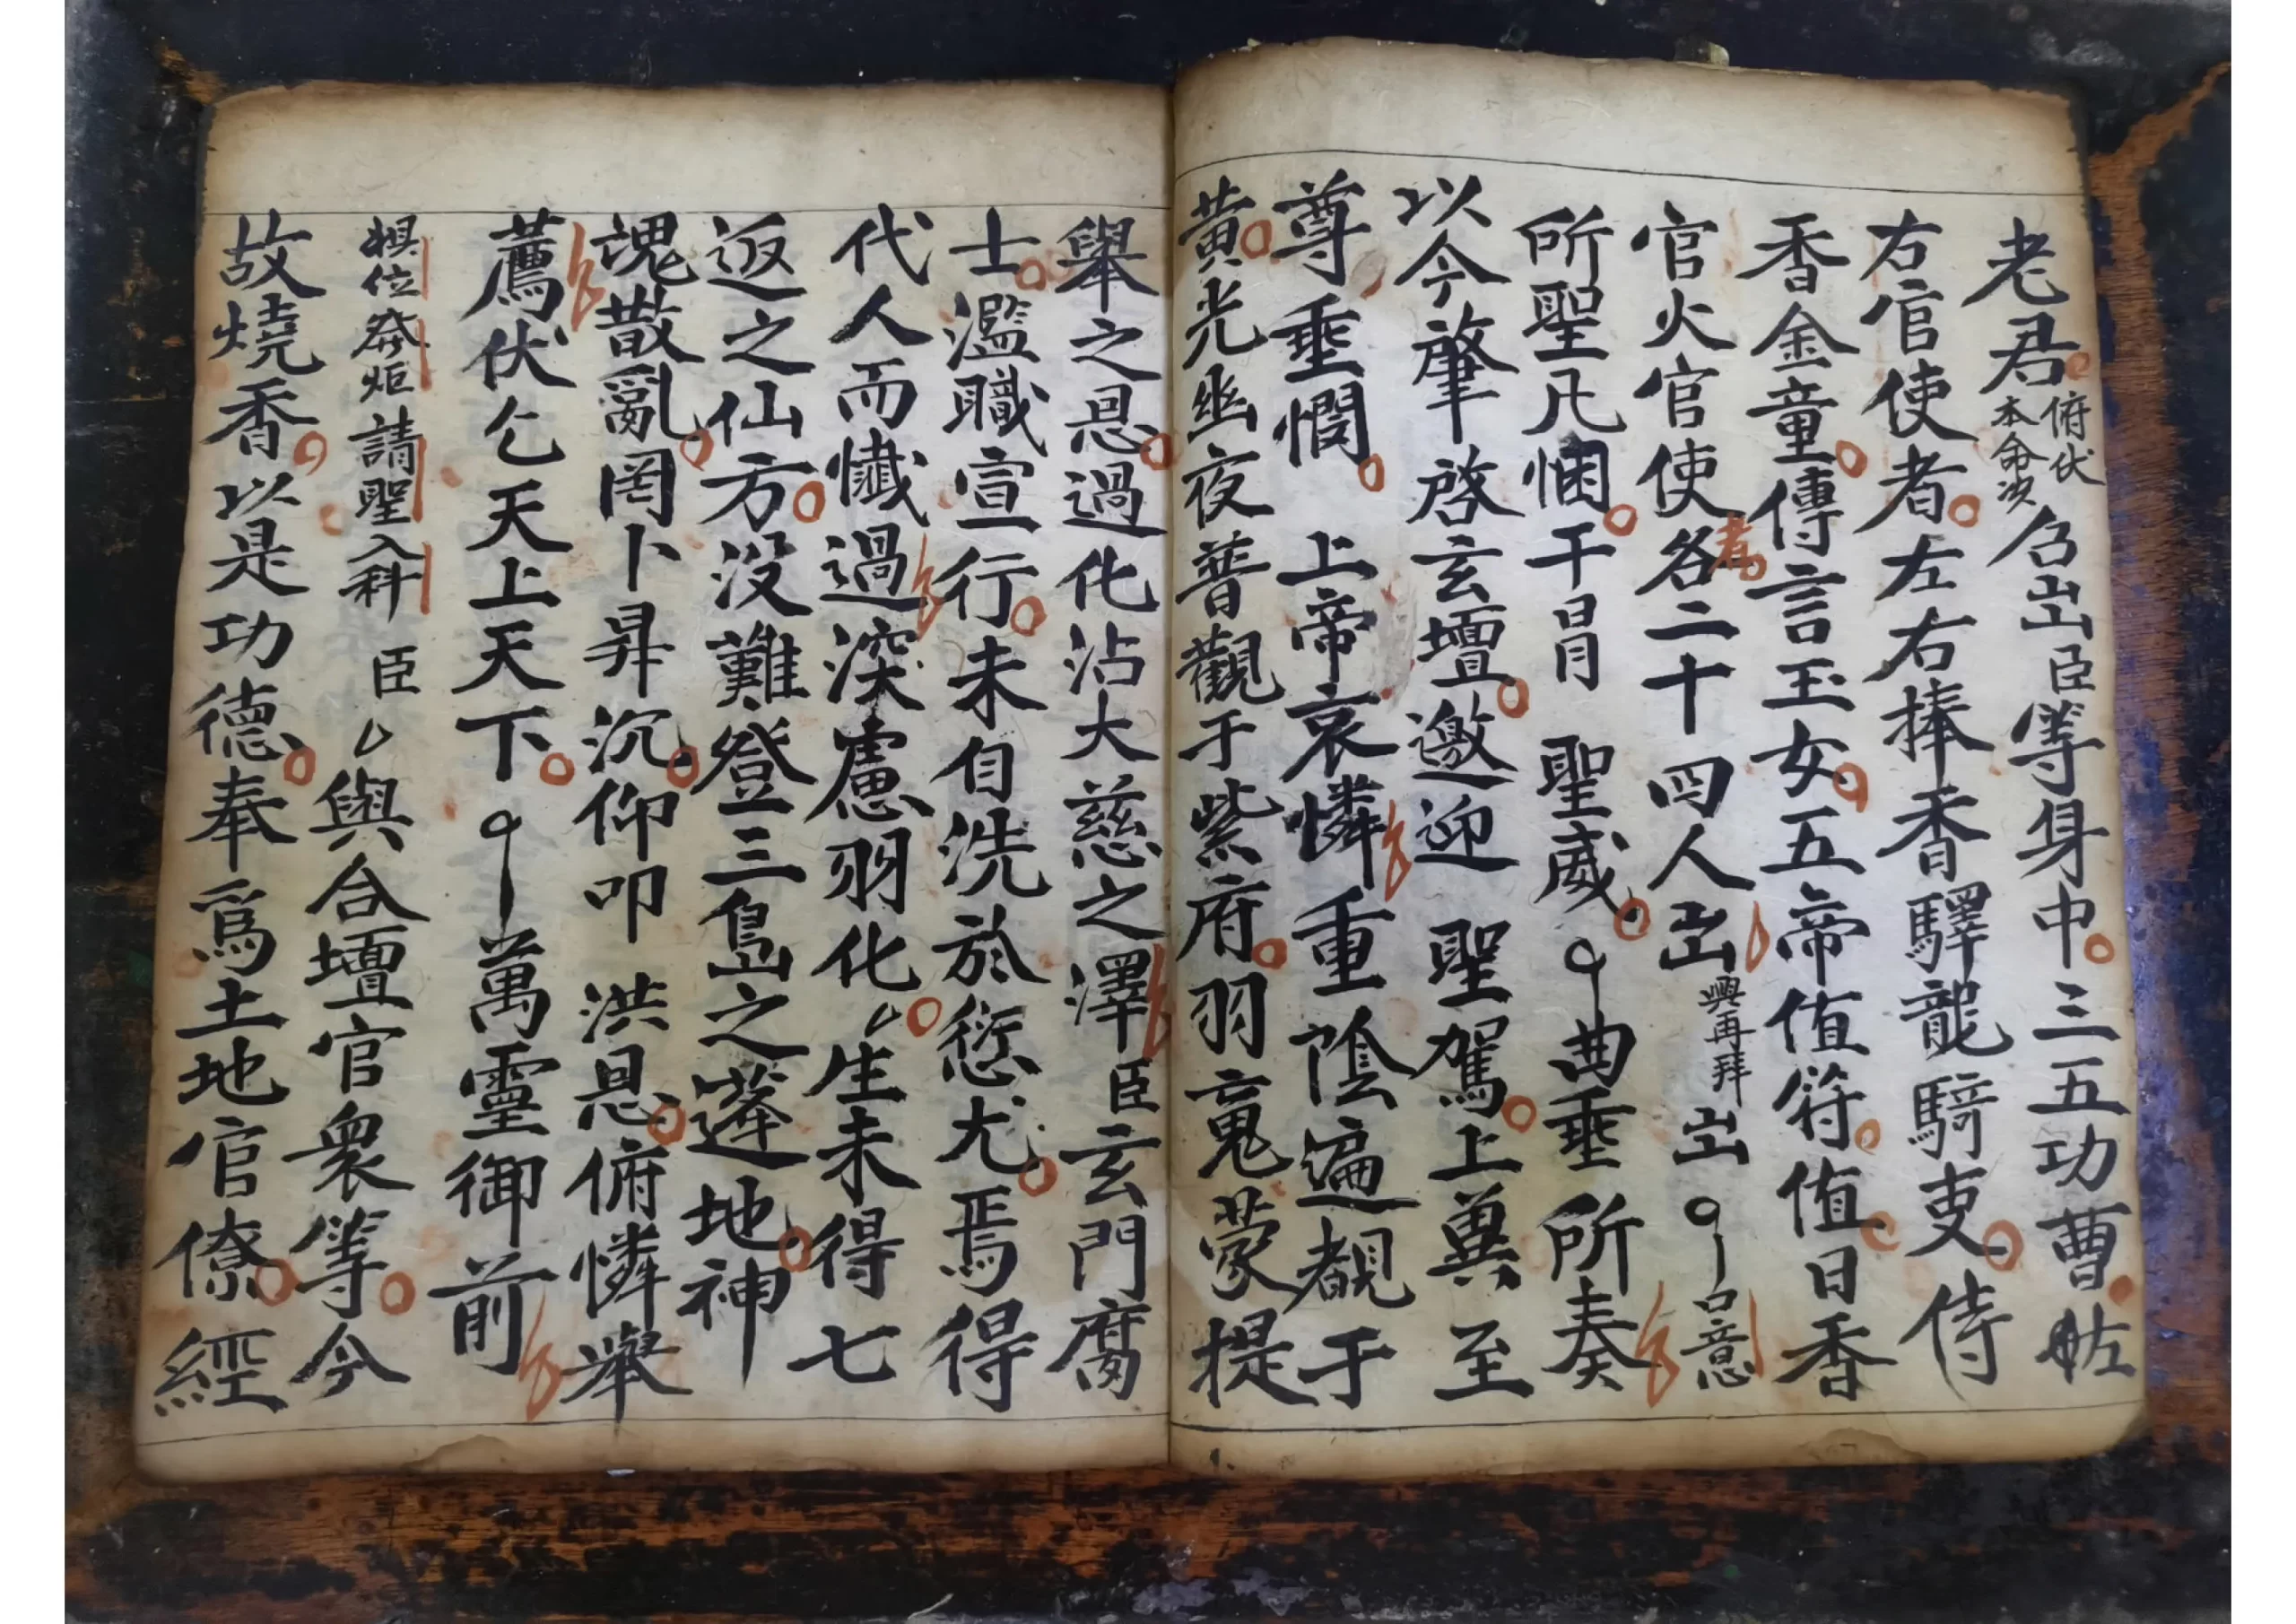 老君俯伏本命次召出臣等身中三五功曹
右官使者左右捧香驛龍騎吏侍
香金童傳言玉女五帝值符值日香
官火官使者各二十四人出興再拜出口意
所聖凡悃干冒聖威曲垂所奏
以今肇啓玄壇邀迎聖駕上兾至
尊垂憫上帝哀憐重陰遍覩于
黃光幽夜普觀于紫府羽䰟蒙提
舉之恩過化沾大慈之澤臣玄門腐
士濫職宣行未自洗於愆尤焉得
代人而懴過深慮羽化生未得七
返之仙方没難登三島之蓬地神
魂散亂罔卜昇沉仰叩洪恩俯憐舉
薦伏乞天上天下萬靈御前
位發炬請聖入科臣與合壇官衆等今
故燒香以是功德奉爲土地官僚經